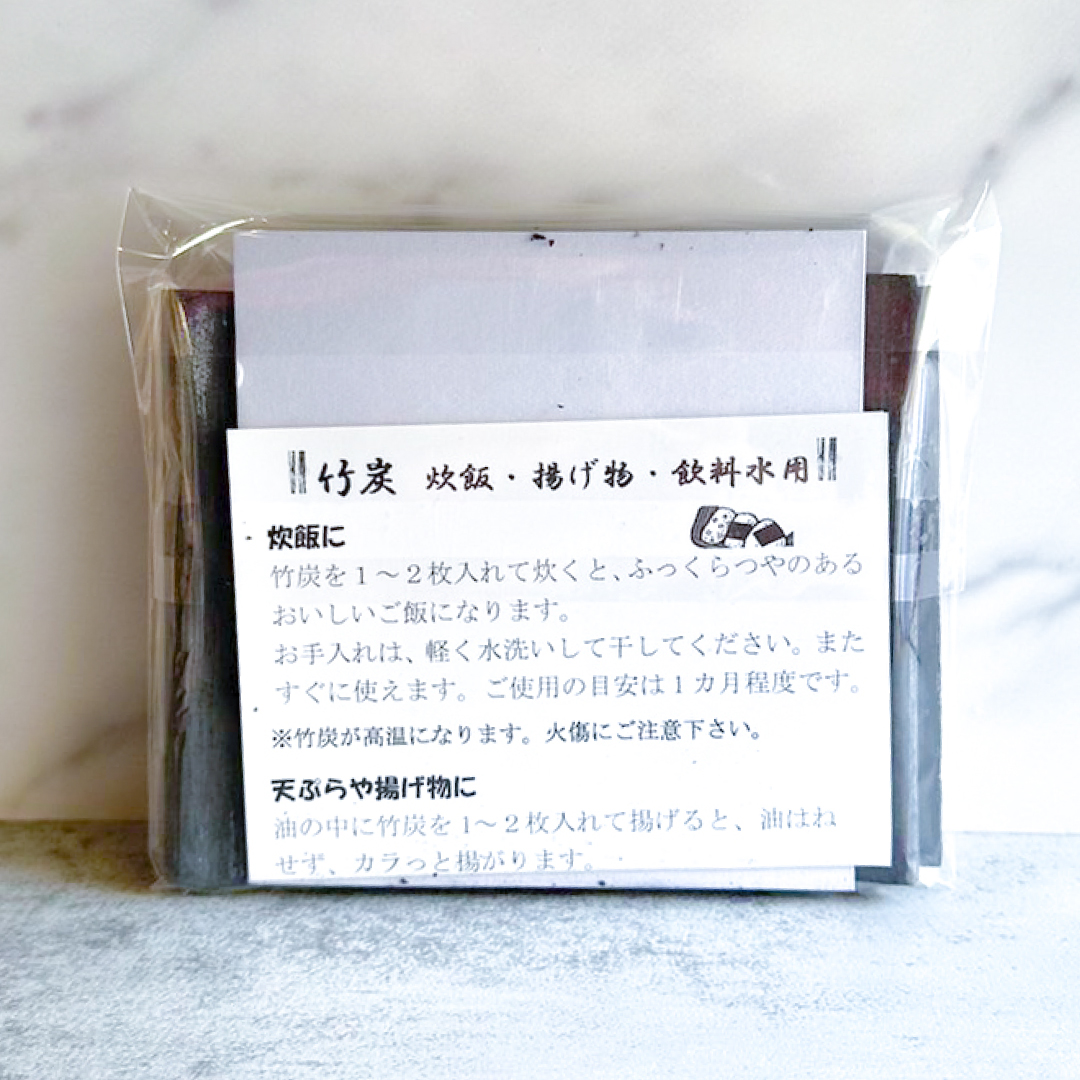 竹炭 炊飯・揚げ物・飲料水用
炊飯に
竹炭を1〜2枚入れて炊くと、ふっくらつやのある
おいしいご飯になります。
お手入れは、軽く水洗いして干してください。また
すぐに使えます。ご使用の目安は1カ月程度です。
※竹炭が高温になります。火傷にご注意下さい。
天ぷらや揚げ物に
油の中に竹炭を1〜2枚入れて揚げると、油はね
せず、カラっと揚がります。